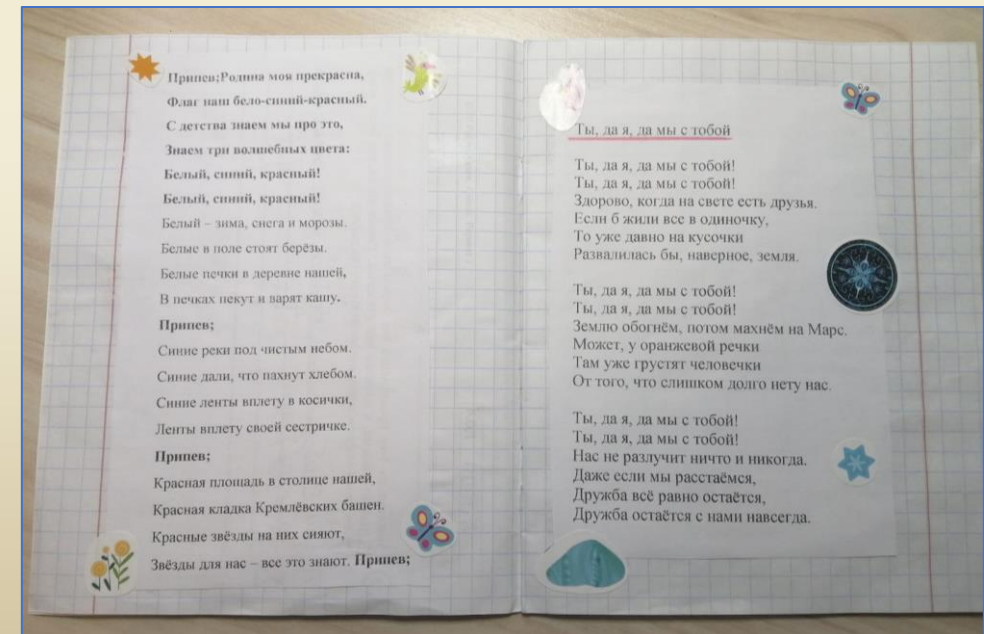 Припев;Родина моя прекрасна,
Флаг наш бело-синий-красный.
С детства знаем мы про это,
Знаем три волшебных цвета:
Белый, синий, красный!
Белый, синий, красный!
Белый – зима, снега и морозы.
Белые в поле стоят берёзы.
Белые печки в деревне нашей,
В печках пекут и варят кашу.
Припев;
Синие реки под чистым небом.
Синие дали, что пахнут хлебом.
Синие ленты вплету в косички,
Ленты вплету своей сестричке.
Припев;
Красная площадь в столице нашей,
Красная кладка Кремлёвских башен.
Красные звёзды на них сияют,
Звёзды для нас – все это знают. Припев;
Ты, да я, да мы с тобой
Ты, да я, да мы с тобой!
Ты, да я, да мы с тобой!
Здорово, когда на свете есть друзья.
Если б жили все в одиночку,
То уже давно на кусочки
Развалилась бы, наверное, земля.
Ты, да я, да мы с тобой!
Ты, да я, да мы с тобой!
Землю обогнём, потом махнём на Марс.
Может, у оранжевой речки
Там уже грустят человечки
От того, что слишком долго нету нас.
Ты, да я, да мы с тобой!
Ты, да я, да мы с тобой!
Нас не разлучит ничто и никогда.
Даже если мы расстаёмся,
Дружба всё равно остаётся,
Дружба остаётся с нами навсегда.